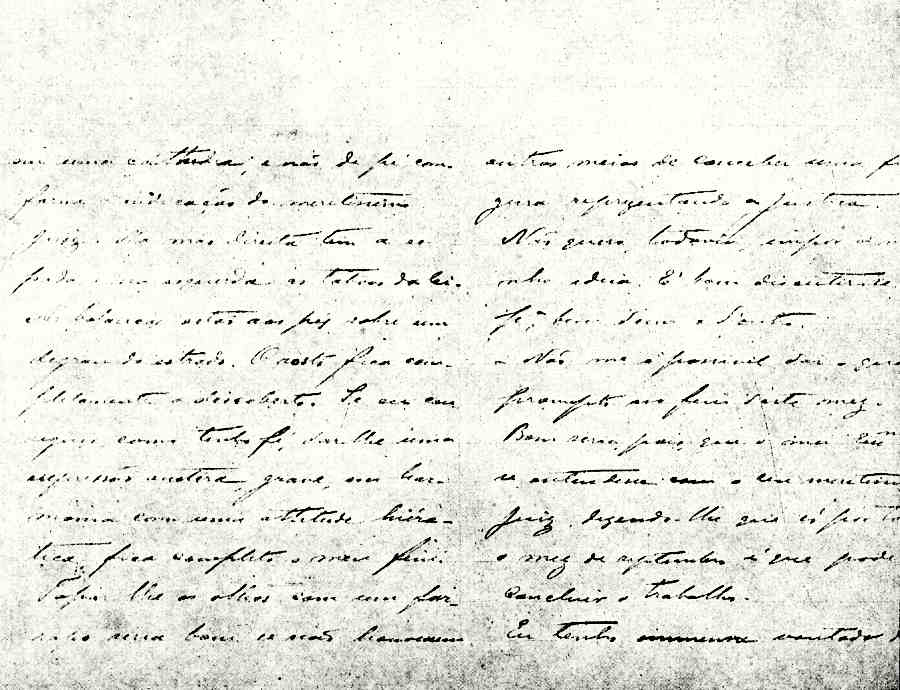 uma cathedra; e não de pé com-
forme a indicação do meretissimo
Juiz. Na mão direita tem a es-
pada e na esquerda as taboas da lei.
balança estão aos pés sobre um
degrau do estrado. O rosto fica com-
pletamente a descoberto. Se eu con
seguir como tenho fé, dar-lhe uma
expressão austera, grave, em har-
monia com uma attitude hierá-
tica, fica completo o meu fim.
Tapar-lhe os olhos com um far-
rapo seria bom se não houvessem
outros meios de conceber uma fi
gura representando a Justiça.
Não quero, todavia, impor a m
nha ideia. E' bom discutirem-se
Fé, bem
Não me é possivel dar o ges
prompto no fim d'este mez.
Bom seria, pois, que o meu
se entendesse com o seu meretissim
Juiz, dizendo-lhe que só por to
o mez de septembro é que pode
concluir o trabalho.
Eu tenho immensa vontade d